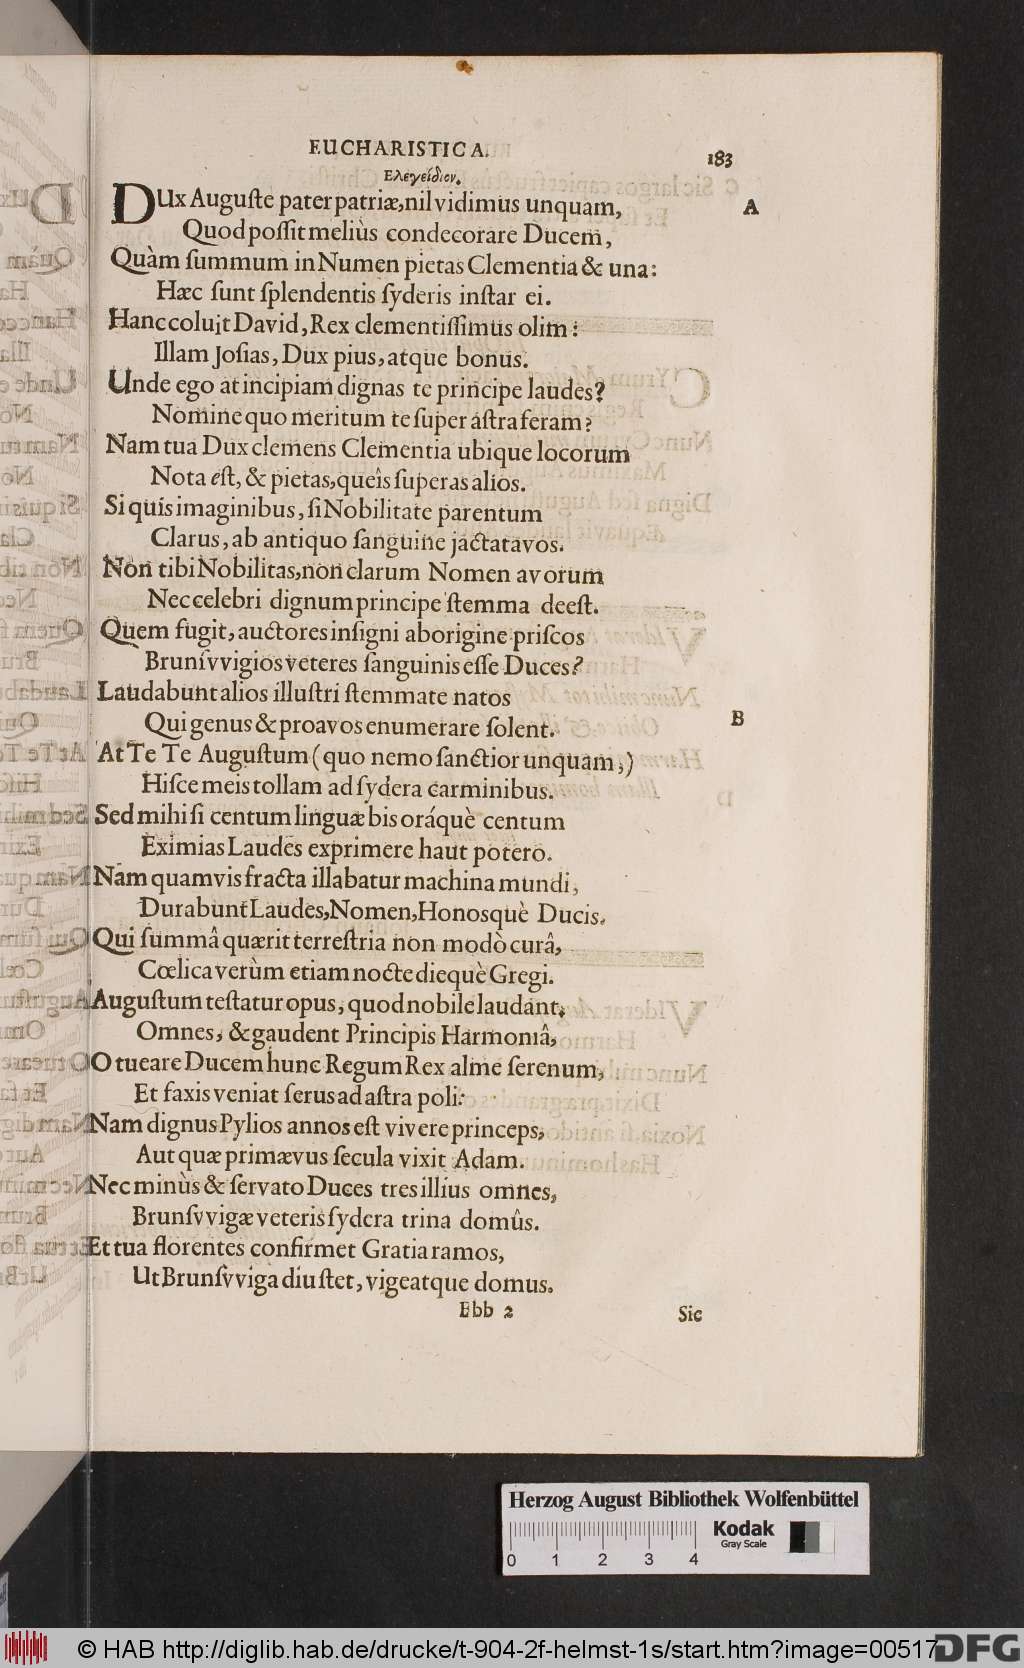 EUCHARISTICA.
183
Ελεγείδιον.
DUx Auguſte pater patriæ, nil vidimus unquam,
A
Quod poſſit meliùs condecorare Ducem,
Quàm ſummum in Numen pietas Clementia & una:
Hæc ſunt ſplendentis ſyderis inſtar ei.
Hanc coluit David, Rex clementiſſimus olim:
Illam Joſias, Dux pius, atque bonus.
Unde ego at incipiam dignas te principe laudes?
Nomine quo meritum te ſuper aſtra feram?
Nam tua Dux clemens Clementia ubique locorum
Nota eſt, & pietas, queîs ſuperas alios.
Si quis imaginibus, ſi Nobilitate parentum
Clarus, ab antiquo ſanguine jactat avos.
Non tibi Nobilitas, non clarum Nomen avorum
Nec celebri dignum principe ſtemma deeſt.
Quem fugit, auctores inſigni aborigine priſcos
Brunſvvigios veteres ſanguinis eſſe Duces?
Laudabunt alios illuſtri ſtemmate natos
Qui genus & proavos enumerare ſolent.
B
At Te Te Auguſtum (quo nemo ſanctior unquam,)
Hiſce meis tollam ad ſydera carminibus.
Sed mihi ſi centum linguæ bis oráquè centum
Eximias Laudes exprimere haut potero.
Nam quamvis fracta illabatur machina mundi,
Durabunt Laudes, Nomen, Honosquè Ducis.
Qui ſummâ quærit terreſtria non modò curâ,
Cœlica verùm etiam nocte diequè Gregi.
Auguſtum teſtatur opus, quod nobile laudant,
Omnes, & gaudent Principis Harmoniâ,
O tueare Ducem hunc Regum Rex alme ſerenum,
Et faxis veniat ſerus ad aſtra poli:
Nam dignus Pylios annos eſt vivere princeps,
Aut quæ primævus ſecula vixit Adam.
Nec minùs & ſervato Duces tres illius omnes,
Brunſvvigæ veteris ſydera trina domûs.
Et tua florentes confirmet Gratia ramos,
Ut Brunſvviga diu ſtet, vigeatque domus.
Bbb 2
Sic
Herzog August Bibliothek Wolfenbüttel
Kodak
Gray Scale
0 1 2 3 4
© HAB http://diglib.hab.de/drucke/t-904-2f-helmst-1s/start.htm?image=00517
DFG